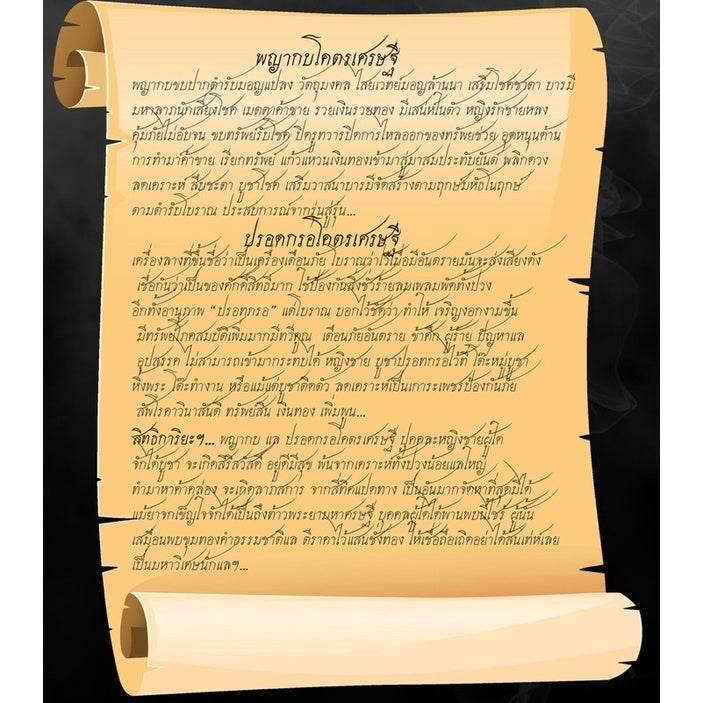 พญากบโคตรเศรษฐี
พญากบขบปากตำรับมอญแปลง วัตถุมงคล ไสยเวทย์มอญล้านนา เสริมโชคชาตา บารมี
มหาลาภนักเสี่ยงโชค เมตตาค้าขาย รวยเงินรวยทอง มีเสน่ห์ในตัว หญิงรักชายหลง
คุ้มภัยไม่อับจน ขบทรัพย์รับโชค ปิดรูทวารปิดการไหลออกของทรัพย์ช่วย อุดหนุนด้าน
การทำมาค้าขาย เรียกทรัพย์ แก้วแหวนเงินทองเข้ามาสู่มาสมประทับยันต์ พลิกดวง
ลดเคราะห์ สืบชะตา บูชาโชค เสริมวาสนาบารมีจัดสร้างตามฤกษ์มหัธโนฤกษ์
ตามตำรับโบราณ ประสบการณ์จากรุ่นสู่รุ่น...
ปรอตกรอโคตรเศรษฐี
เครื่องลางที่ขึ้นชื่อว่าเป็นเครื่องเตือนภัย โบราณว่าไว้เมื่อมีอันตรายมันจะส่งเสียงดัง
เชื่อกันว่าเป็นของศักดิ์สิทธิ์มาก ใช้ป้องกันสิ่งชั่วร้ายลมเพลมพัดทั้งปวง
อีกทั้งอานุภาพ "ปรอตกรอ" แต่โบราณ บอกไว้ชัดว่า ทำให้ เจริญงอกงามขึ้น
มีทรัพย์โภคสมบัติเพิ่มมากมีทวีคูณ เตือนภัยอันตราย ข้าศึก ผู้ร้าย ปัญหาแล
อุปสรรค ไม่สามารถเข้ามากระทบได้ หญิงชาย บูชาปรอตกรอไว้ที่ โต๊ะหมู่บูชา
หิ้งพระ โต๊ะทำงาน หรือแม้แต่บูชาติดตัว ลดเคราะห์เป็นเกราะเพชรป้องกันภัย
สัพโรคาวินาสันติ ทรัพย์สิน เงินทอง เพิ่มพูน...
สิทธิการิยะฯ... พญากบ แล ปรอตกรอโคตรเศรษฐี ปุคคละหญิงชายผู้ใด
จักได้บูชา จะเกิดสิริสวัสดิ์ อยู่ดีมีสุข พ้นจากเคราะห์ทั้งปวงน้อยแลใหญ่
ทำมาหาค้าคล่อง จะเกิดลาภสการ จากสี่ทิศแปดทาง เป็นอันมากจัดหาที่สุดมิได้
แม้ยาจกเข็ญใจจักได้เป็นถึงท้าวพระยามหาเศรษฐี บุคคลผู้ใดได้พานพบนี้ไซร้ ผู้นั้น
เสมือนพบขุมทองคำธรรมชาติแล ตีราคาไว้แสนชั่งทอง ให้เชื่อถือเถิดอย่าได้สนเท่ห์เลย
เป็นมหาวิเศษนักแลฯ...